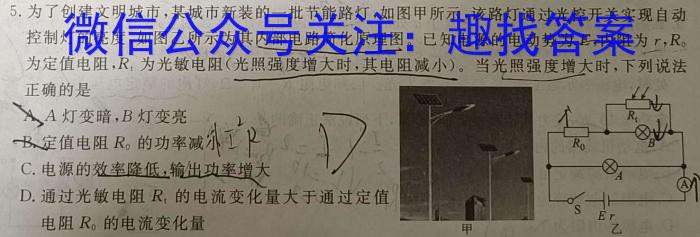 5.为了创建文明城市,某城市新装的一批节能路灯,如图甲所示,该路灯通过光控开关实现自动
控制
微信公众号关注：趣找答案
为 r,R₀
为定值电阻,Rₜ 为光敏电阻(光照强度增大时,其电阻减小)。当光照强度增大时,下列说法
正确的是
A. A 灯变暗,B 灯变亮
B. 定值电阻 R₀ 的功率减小 I²R
D
C. 电源的效率降低,输出功率增大
D. 通过光敏电阻 Rₜ 的电流变化量大于通过定值
电阻 R₀ 的电流变化量
甲
Rₜ
R₀
B
A
A
S
E r
乙